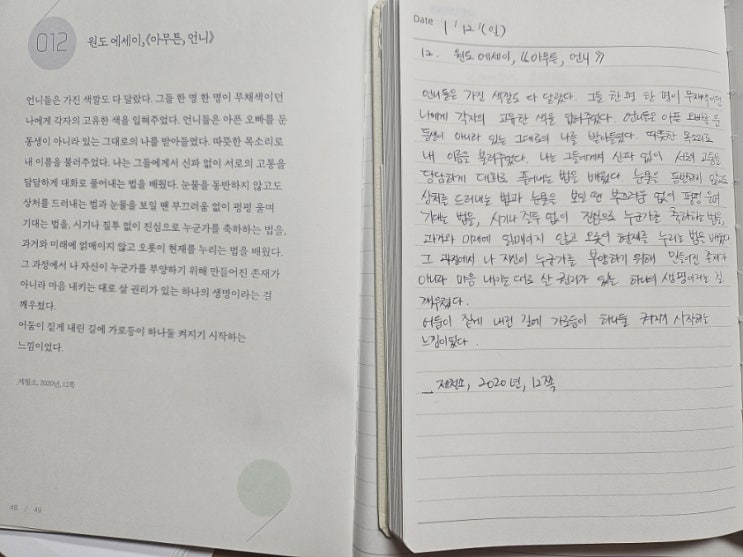 012
원도 에세이, 《아무튼, 언니》
언니들은 가진 색깔도 다 달랐다. 그들 한 명 한 명이 무채색이던
나에게 각자의 고유한 색을 입혀주었다. 언니들은 아픈 오빠를 둔
동생이 아니라 있는 그대로의 나를 받아들였다. 따뜻한 목소리로
내 이름을 불러주었다. 나는 그들에게서 신파 없이 서로의 고통을
담담하게 대화로 풀어내는 법을 배웠다. 눈물을 동반하지 않고도
상처를 드러내는 법과 눈물을 보일 땐 부끄러움 없이 펑펑 울며
기대는 법을, 시기나 질투 없이 진심으로 누군가를 축하하는 법을,
과거와 미래에 얽매이지 않고 오롯이 현재를 누리는 법을 배웠다.
그 과정에서 나 자신이 누군가를 부양하기 위해 만들어진 존재가
아니라 마음 내키는 대로 살 권리가 있는 하나의 생명이라는 걸
깨우쳤다.
어둠이 짙게 내린 길에 가로등이 하나둘 켜지기 시작하는
느낌이었다.
제철소, 2020년, 12쪽
48 / 49
Date 1 / 12 (일)
12. 원도 에세이, 《아무튼, 언니》
언니들은 가진 색깔도 다 달랐다. 그들 한 명 한 명이 무채색이던
나에게 각자의 고유한 색을 입혀주었다. 언니들은 아픈 오빠를 둔
동생이 아니라 있는 그대로의 나를 받아들였다. 따뜻한 목소리로
내 이름을 불러주었다. 나는 그들에게서 신파 없이 서로의 고통을
담담하게 대화로 풀어내는 법을 배웠다. 눈물을 동반하지 않고도
상처를 드러내는 법과 눈물을 보일 땐 부끄러움 없이 펑펑 울며
기대는 법을, 시기나 질투 없이 진심으로 누군가를 축하하는 법을,
과거와 미래에 얽매이지 않고 오롯이 현재를 누리는 법을 배웠다.
그 과정에서 나 자신이 누군가를 부양하기 위해 만들어진 존재가
아니라 마음 내키는 대로 살 권리가 있는 하나의 생명이라는 걸
깨우쳤다.
어둠이 짙게 내린 길에 가로등이 하나둘 켜지기 시작하는
느낌이었다.
_제철소, 2020년, 12쪽